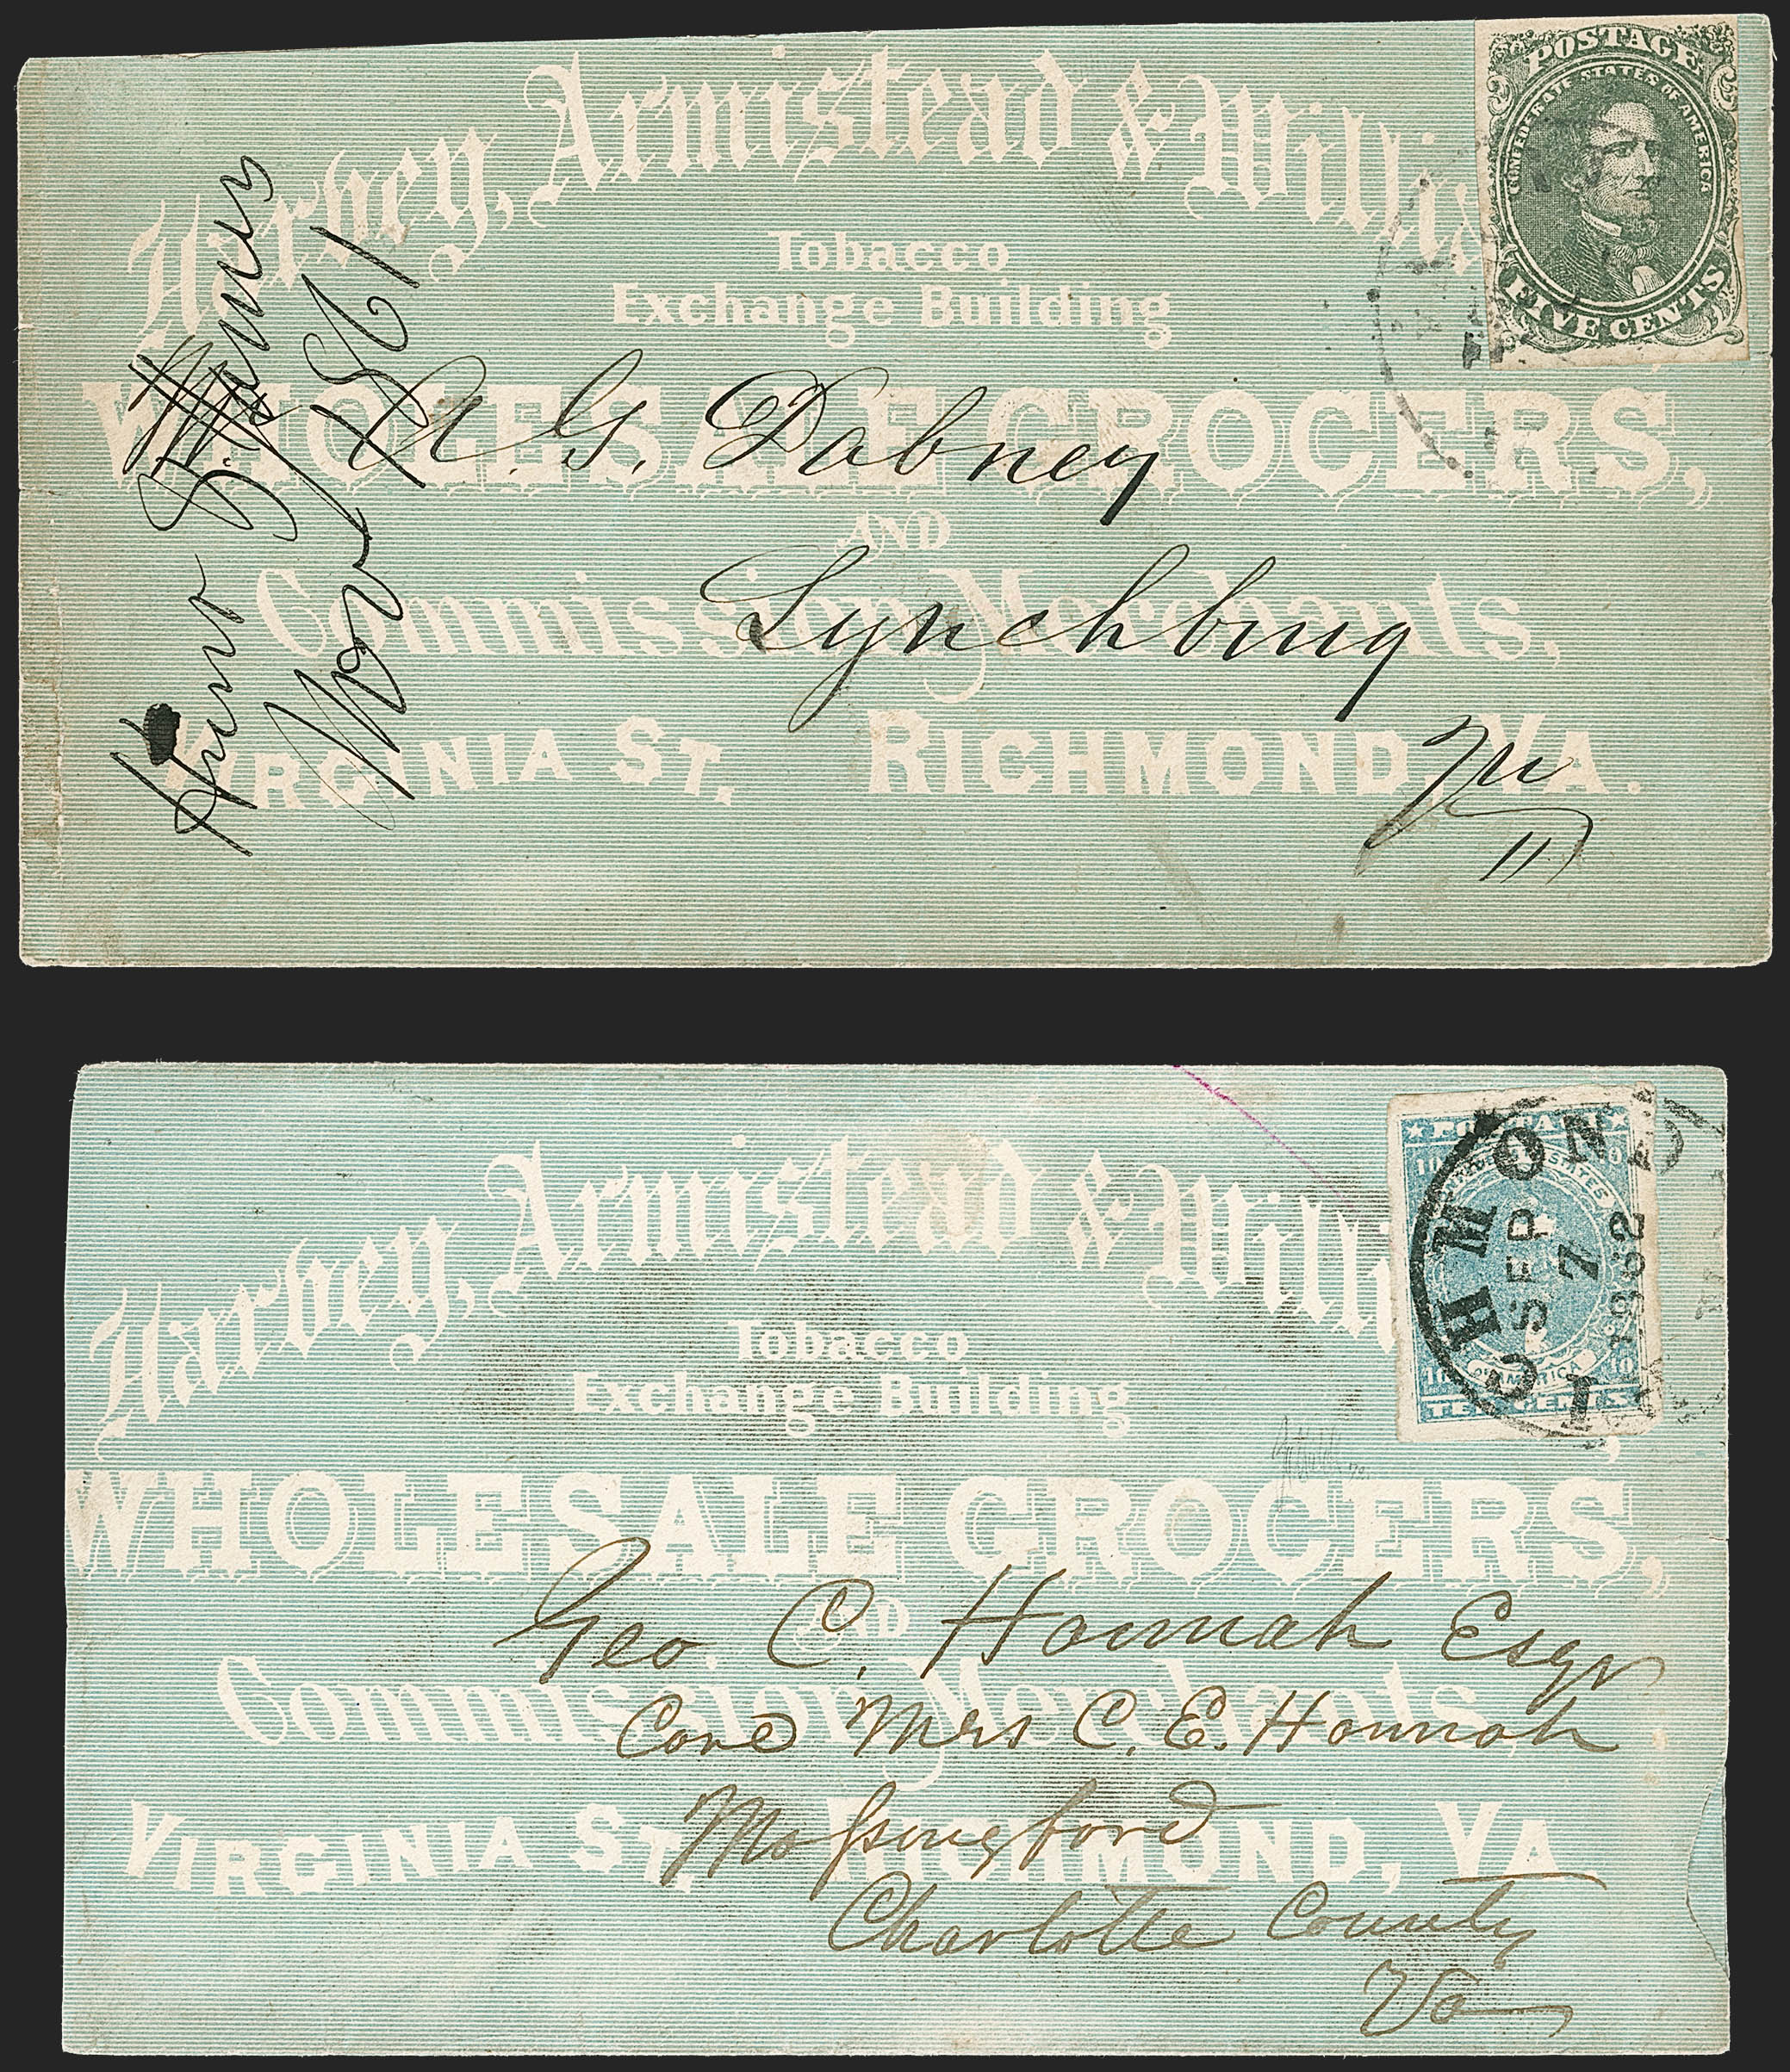 Harvey, Armistead & Willia
POSTAGE
CONFEDERATE STATES OF AMERICA
FIVE CENTS
Tobacco
Exchange Building
WHOLESALE GROCERS,
AND
Commission Merchants,
VIRGINIA ST. RICHMOND, VA.
A. G. Dabney
Lynchburg
Nov 1861
Harvey, Armistead & Willi
POSTAGE
STATES
OF AMERICA
TEN CENTS
RICHMOND
SEP
7
1862
Tobacco
Exchange Building
WHOLESALE GROCERS,
AND
Commission Merchants,
VIRGINIA ST. RICHMOND, VA
Geo C. Hannah Esqr
Care Mrs C. E. Hannah
Mossingford
Charlotte County
Va